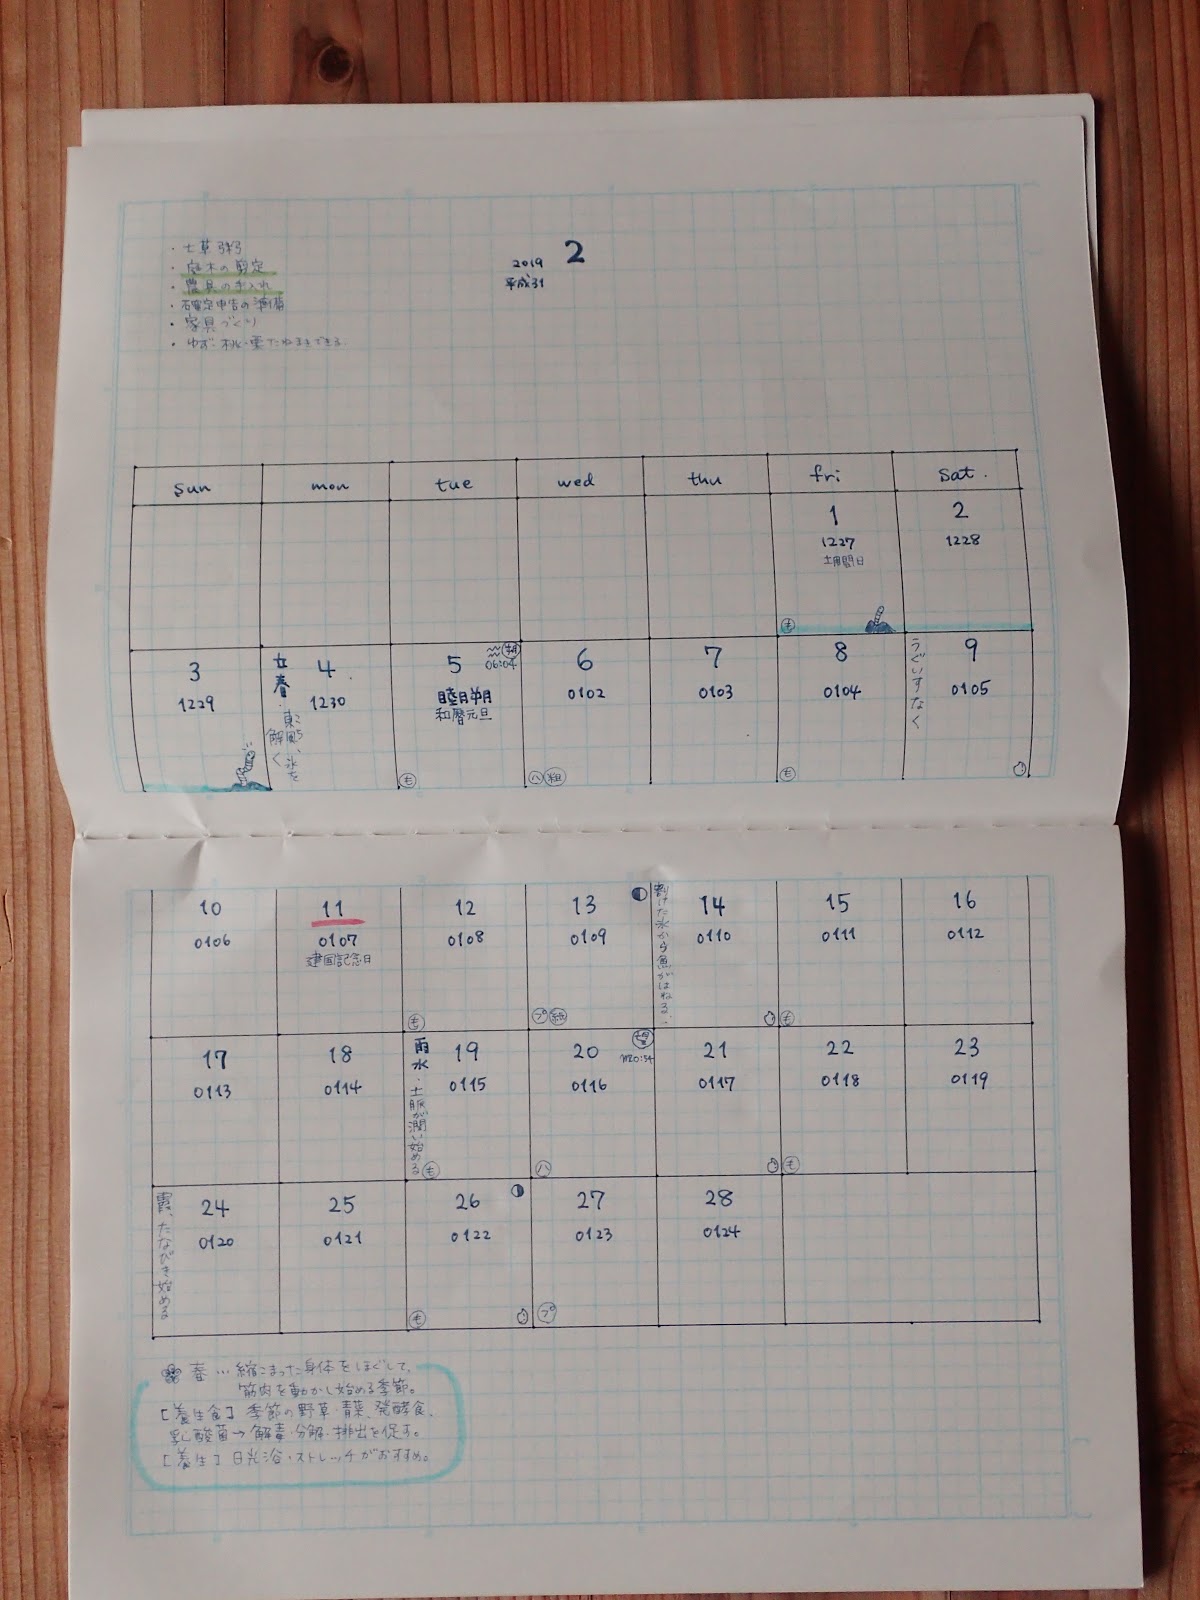 ・七草粥
・庭木の剪定
・農具の手入れ
・確定申告の準備
・家具づくり
・ゆず・桃・栗たねまきできる
2019 2
平成31
sun mon tue wed thu fri sat.
1 2
1227 1228
土用間日
も
3 立春・東こち風、氷を解く 4 5 朔 06:04 6 7 8 うぐいすなく 9
1229 1230 睦月朔 0102 0103 0104 0105
和暦元旦
も ハ 粗 も
10 11 12 13 割けた氷から魚がはねる 14 15 16
0106 0107 0108 0109 0110 0111 0112
建国記念日
も プ 紙 も
17 18 雨水・土脈が潤い始める 19 20 望 21 22 23
0113 0114 0115 0116 0117 0118 0119
も ハ も
霞、たなびき始める 24 25 26 27 28
0120 0121 0122 0123 0124
も プ
春…縮こまった身体をほぐして、
筋肉を動かし始める季節。
[養生食]季節の野草・青菜、発酵食、
乳酸菌→解毒・分解・排出を促す。
[養生]日光浴・ストレッチがおすすめ。